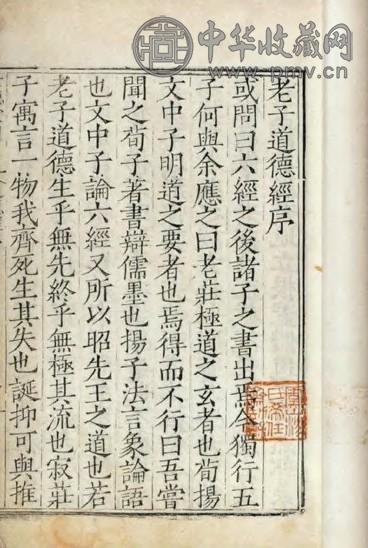 中华收藏网
www.pmv.cn
老子道德經序
或問曰六經之後諸子之書出焉今獨行五
子何與余應之曰老莊極道之玄者也荀揚
文中子明道之要者也焉得而不行曰吾嘗
聞之荀子著書辯儒墨也揚子法言象論語
也文中子論六經又所以昭先王之道也若
老子道德生乎無先終乎無極其流也寂莊
子寓言一物我齊死生其失也誕抑可與推